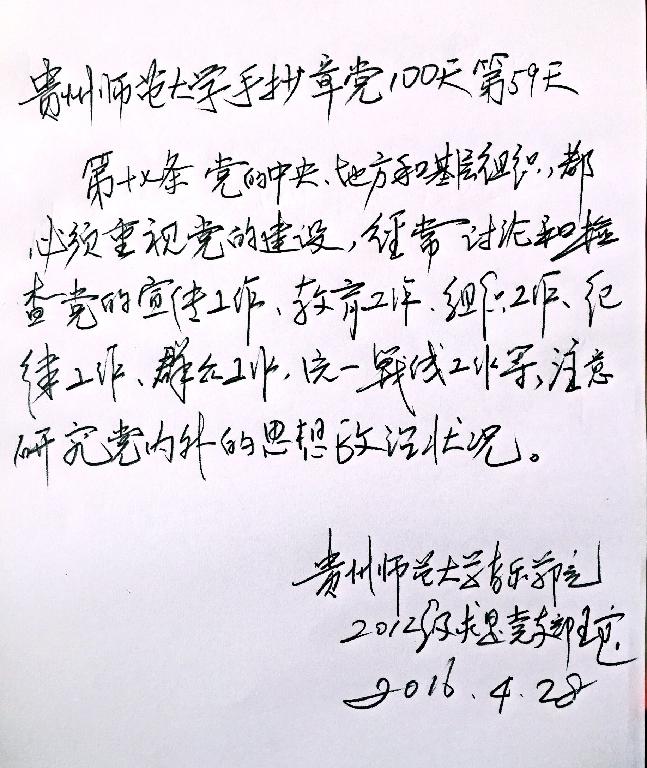 贵州师范大学手抄章党100天第59天
第十七条 党的中央、地方和基层组织，都
必须重视党的建设，经常讨论和检
查党的宣传工作、教育工作、组织工作、纪
律工作、群众工作、统一战线工作等，注意
研究党内外的思想政治状况。
贵州师范大学音乐学院
2012级求是党支部
2016.4.28